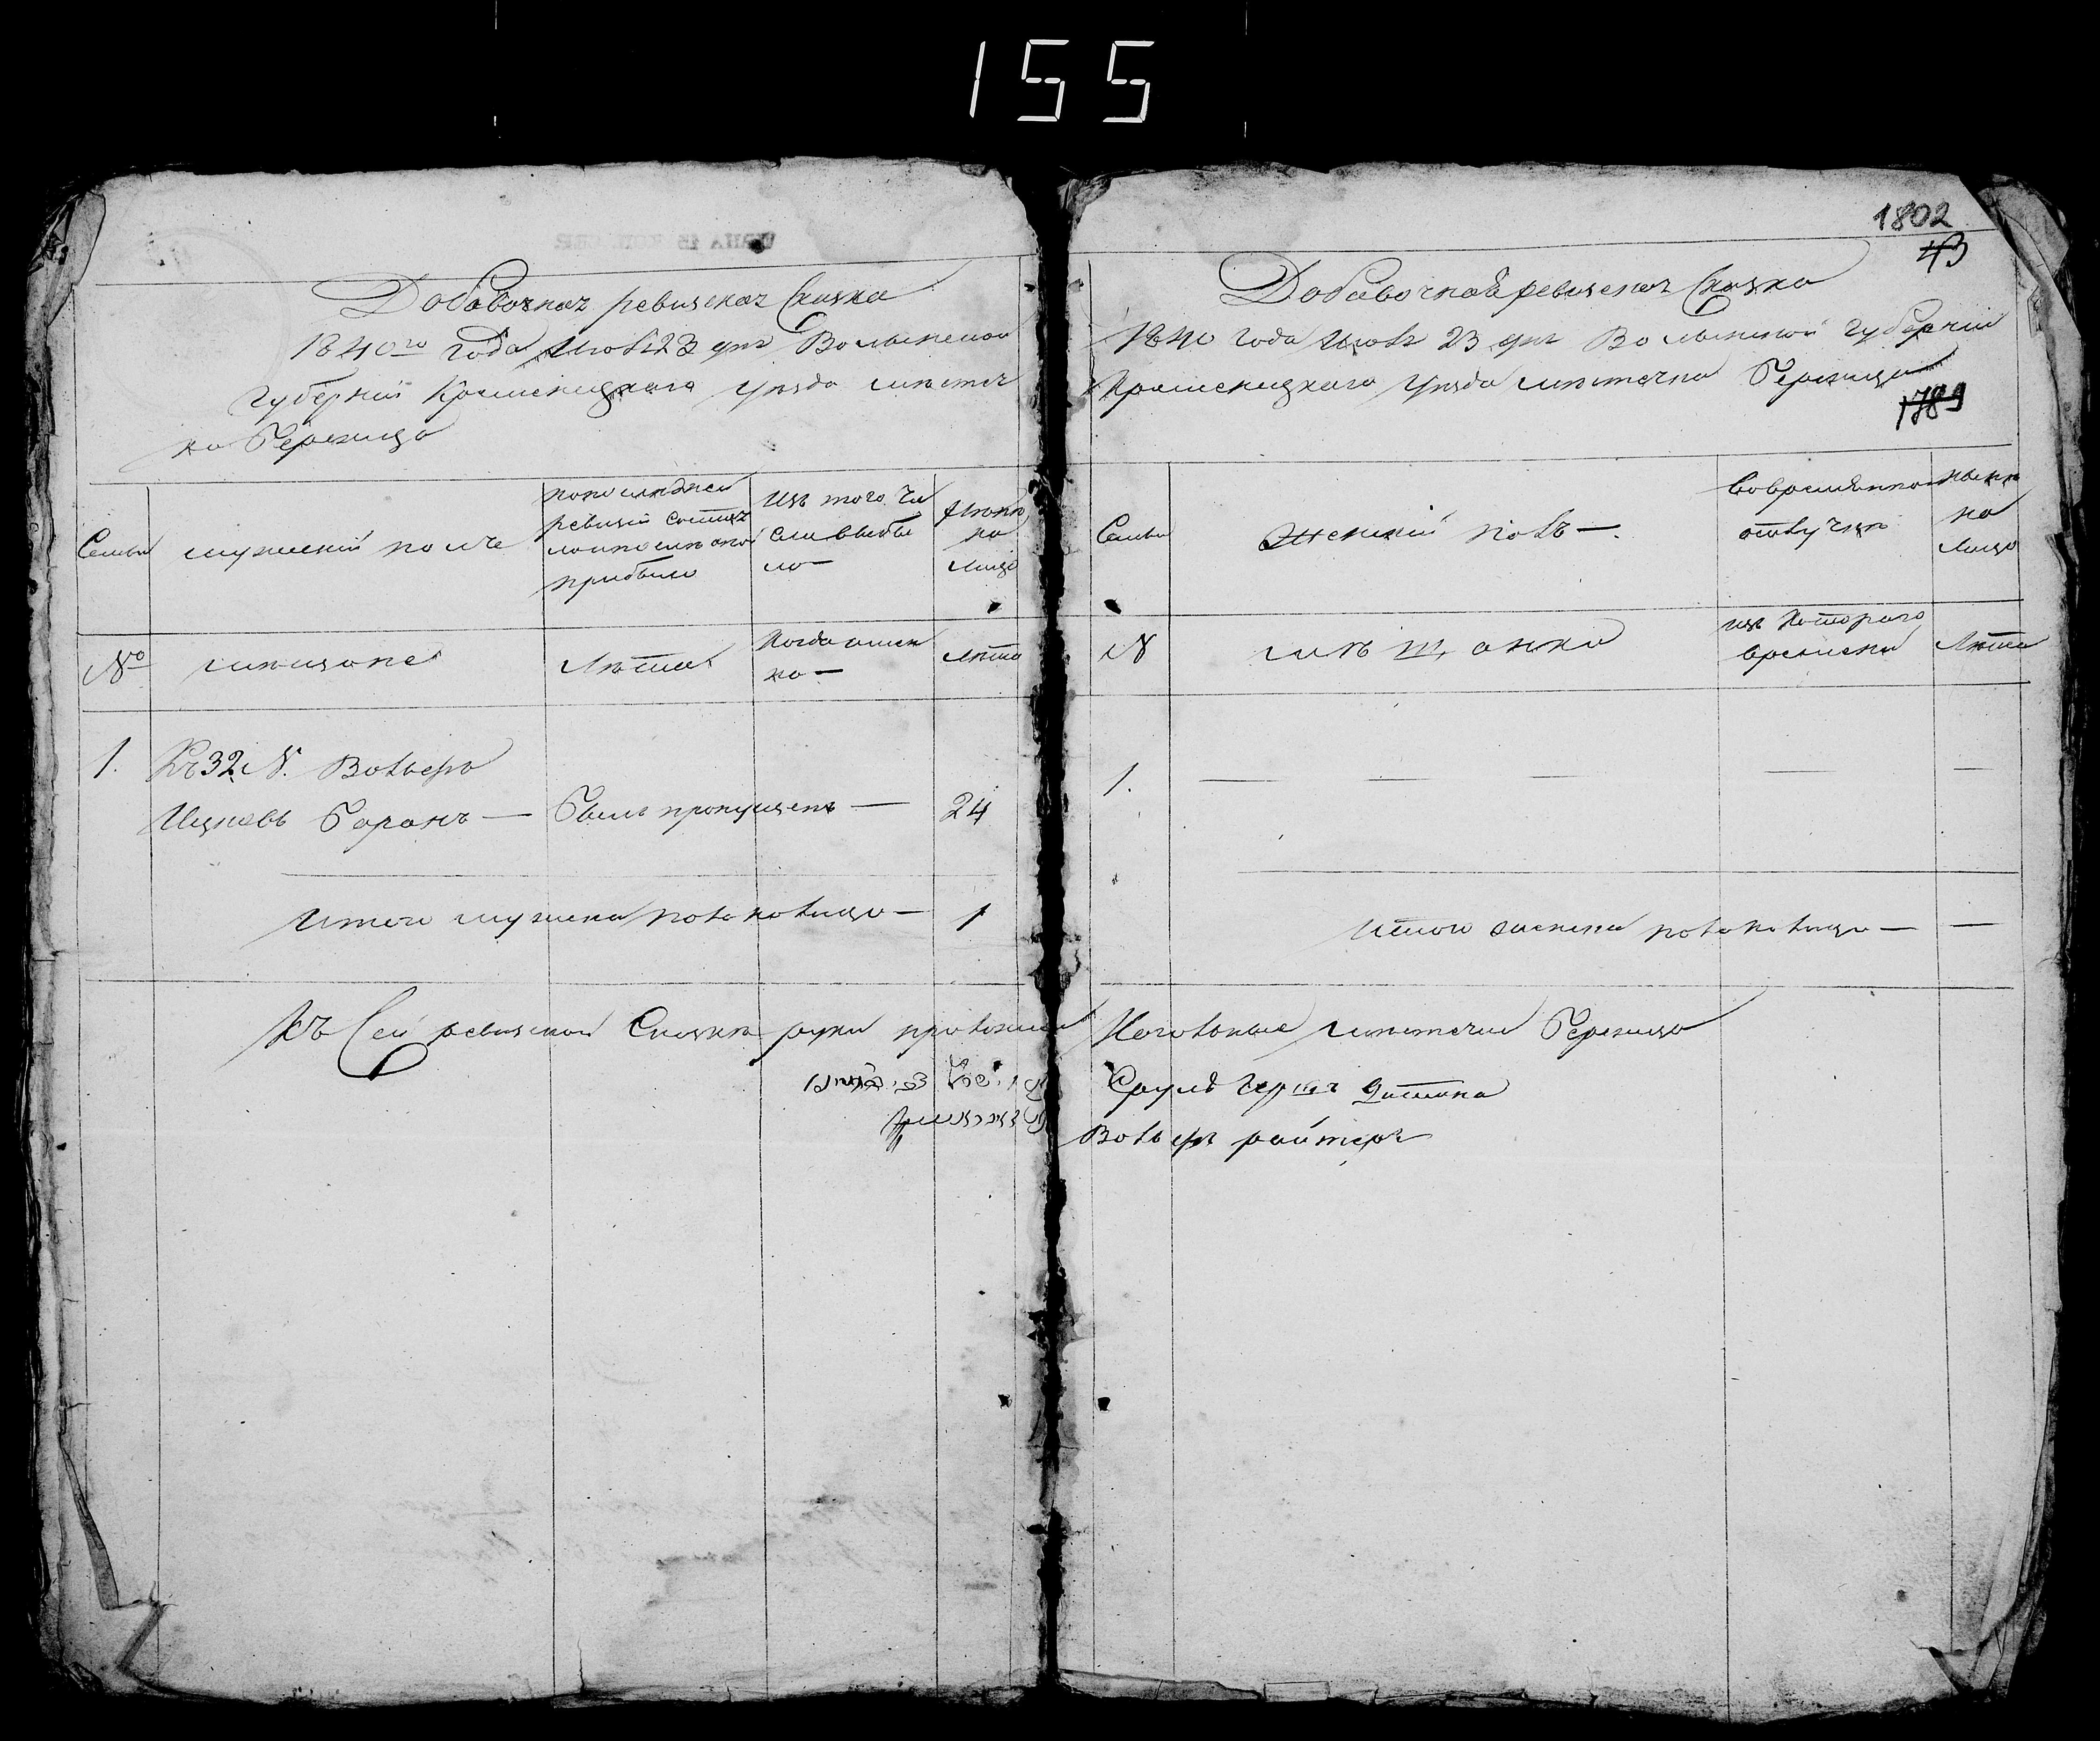 155
Добавочная ревизская Сказка
1840го Года Июля 23 дня Волынской
Губернии Кременецкаго уезда местеч
ка Бережца
Семьи
мужеский полъ
по последней
ревизии состоял
или после оной
прибыло
Изъ того Чи
сла выбы
ло —
Ныне
на
лицо
№
мещане
Лета
Когда имен
но —
Лета
1.
Къ 32 №. Вольфъ
Ицковъ Баранъ —
Былъ пропущенъ —
24
Итого мужеска пола на лицо —
1
Къ Сей ревизской Сказке руки приложили
1802
43
Добавочная ревизская Сказка
1840 года Июля 23 дня Волынской Губернии
Кременецкаго уезда местечка Бережца
1789
Семьи
Женский полъ —.
Во временной
отлучке
ныне
на
лицо
№
мещанки
изъ Котораго
времени
Лета
1. — — — — —
Итого женска пола на лицо — —
Кагальные местечка Бережца
Сруль Герш
Вольфъ райтеръ